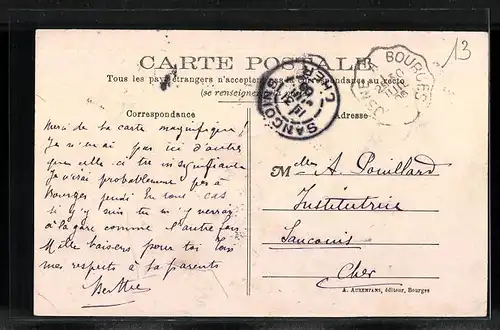 13
CARTE POSTALE
Tous les pays étrangers n'acceptent pas la correspondance au recto
(se renseigner à la poste)
Correspondance
Adresse
SANCOINS
CHER
BOURGES
Merci de la carte magnifique,
Je n'ai pas ici d'autre
que celle ci très insignifiante
J'irai probablement pas à
Bourges jeudi En tout cas
si j'y suis tu m'y verras
à la gare comme l'autre fois
Mille baisers pour toi
mes respects à tes parents
Berthe
Melle A. Pouillard
Institutrice
Sancoins
Cher
A. AUXENFANS, éditeur, Bourges